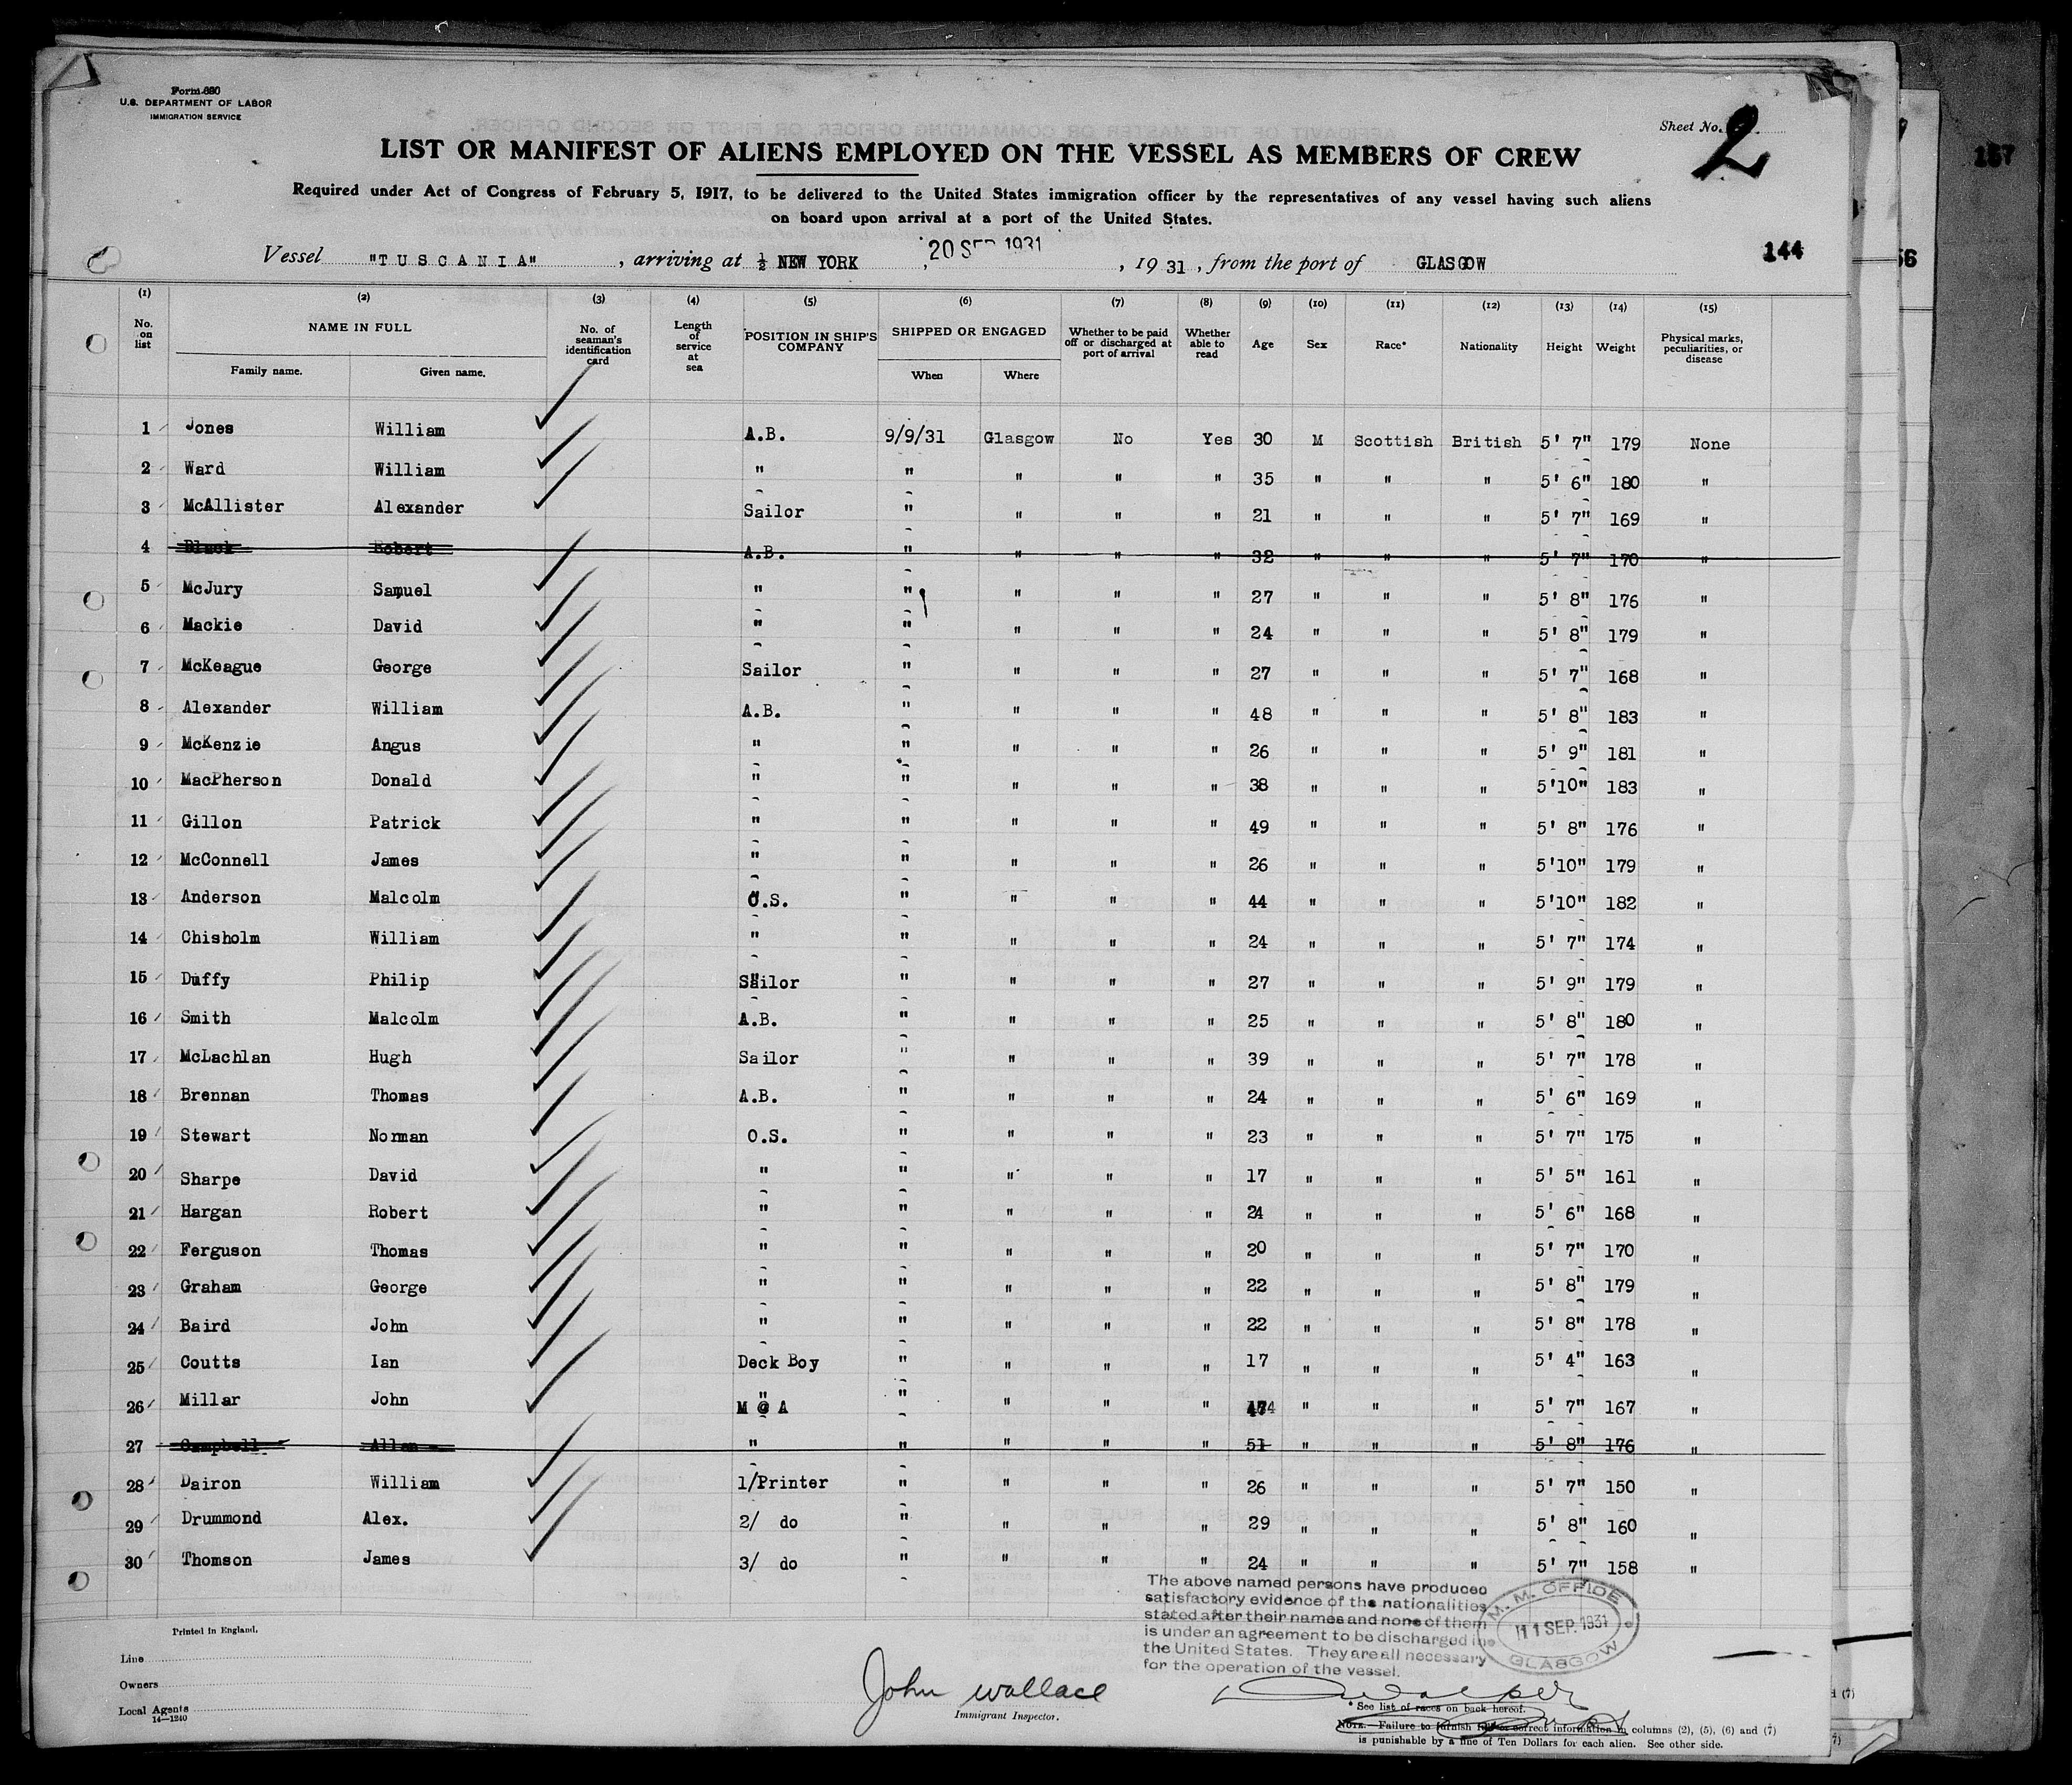 Form 680
U.S. DEPARTMENT OF LABOR
IMMIGRATION SERVICE
Sheet No. 2
LIST OR MANIFEST OF ALIENS EMPLOYED ON THE VESSEL AS MEMBERS OF CREW
Required under Act of Congress of February 5, 1917, to be delivered to the United States immigration officer by the representatives of any vessel having such aliens
on board upon arrival at a port of the United States.
Vessel "TUSCANIA", arriving at ½ NEW YORK, 20 SEP 1931, 1931, from the port of GLASGOW
144
157
(1) (2) (3) (4) (5) (6) (7) (8) (9) (10) (11) (12) (13) (14) (15)
No. on list NAME IN FULL Family name. Given name. No. of seaman's identification card Length of service at sea POSITION IN SHIP'S COMPANY SHIPPED OR ENGAGED When Where Whether to be paid off or discharged at port of arrival Whether able to read Age Sex Race* Nationality Height Weight Physical marks, peculiarities, or disease
1 Jones William A.B. 9/9/31 Glasgow No Yes 30 M Scottish British 5' 7" 179 None
2 Ward William " " " " " 35 " " " 5' 6" 180 "
3 McAllister Alexander Sailor " " " " 21 " " " 5' 7" 169 "
4 Black Robert A.B. " " " " 32 " " " 5' 7" 170 "
5 McJury Samuel " " " " " 27 " " " 5' 8" 176 "
6 Mackie David " " " " " 24 " " " 5' 8" 179 "
7 McKeague George Sailor " " " " 27 " " " 5' 7" 168 "
8 Alexander William A.B. " " " " 48 " " " 5' 8" 183 "
9 McKenzie Angus " " " " " 26 " " " 5' 9" 181 "
10 MacPherson Donald " " " " " 38 " " " 5'10" 183 "
11 Gillon Patrick " " " " " 49 " " " 5' 8" 176 "
12 McConnell James " " " " " 26 " " " 5'10" 179 "
13 Anderson Malcolm O.S. " " " " 44 " " " 5'10" 182 "
14 Chisholm William " " " " " 24 " " " 5' 7" 174 "
15 Duffy Philip Sailor " " " " 27 " " " 5' 9" 179 "
16 Smith Malcolm A.B. " " " " 25 " " " 5' 8" 180 "
17 McLachlan Hugh Sailor " " " " 39 " " " 5' 7" 178 "
18 Brennan Thomas A.B. " " " " 24 " " " 5' 6" 169 "
19 Stewart Norman O.S. " " " " 23 " " " 5' 7" 175 "
20 Sharpe David " " " " " 17 " " " 5' 5" 161 "
21 Hargan Robert " " " " " 24 " " " 5' 6" 168 "
22 Ferguson Thomas " " " " " 20 " " " 5' 7" 170 "
23 Graham George " " " " " 22 " " " 5' 8" 179 "
24 Baird John " " " " " 22 " " " 5' 8" 178 "
25 Coutts Ian Deck Boy " " " " 17 " " " 5' 4" 163 "
26 Millar John M @ A " " " " " " " 5' 7" 167 "
27 Campbell Allan " " " " " 51 " " " 5' 8" 176 "
28 Dairon William 1/Printer " " " " 26 " " " 5' 7" 150 "
29 Drummond Alex. 2/ do " " " " 29 " " " 5' 8" 160 "
30 Thomson James 3/ do " " " " 24 " " " 5' 7" 158 "
The above named persons have produced
satisfactory evidence of the nationalities
stated after their names and none of them
is under an agreement to be discharged in
the United States. They are all necessary
for the operation of the vessel.
M. M. OFFICE
11 SEP. 1931
GLASGOW
Printed in England.
Line
Owners
Local Agents
14—1240
John Wallace
Immigrant Inspector.
* See list of races on back hereof.
NOTE.—Failure to furnish full or correct information in columns (2), (5), (6) and (7)
is punishable by a fine of Ten Dollars for each alien. See other side.